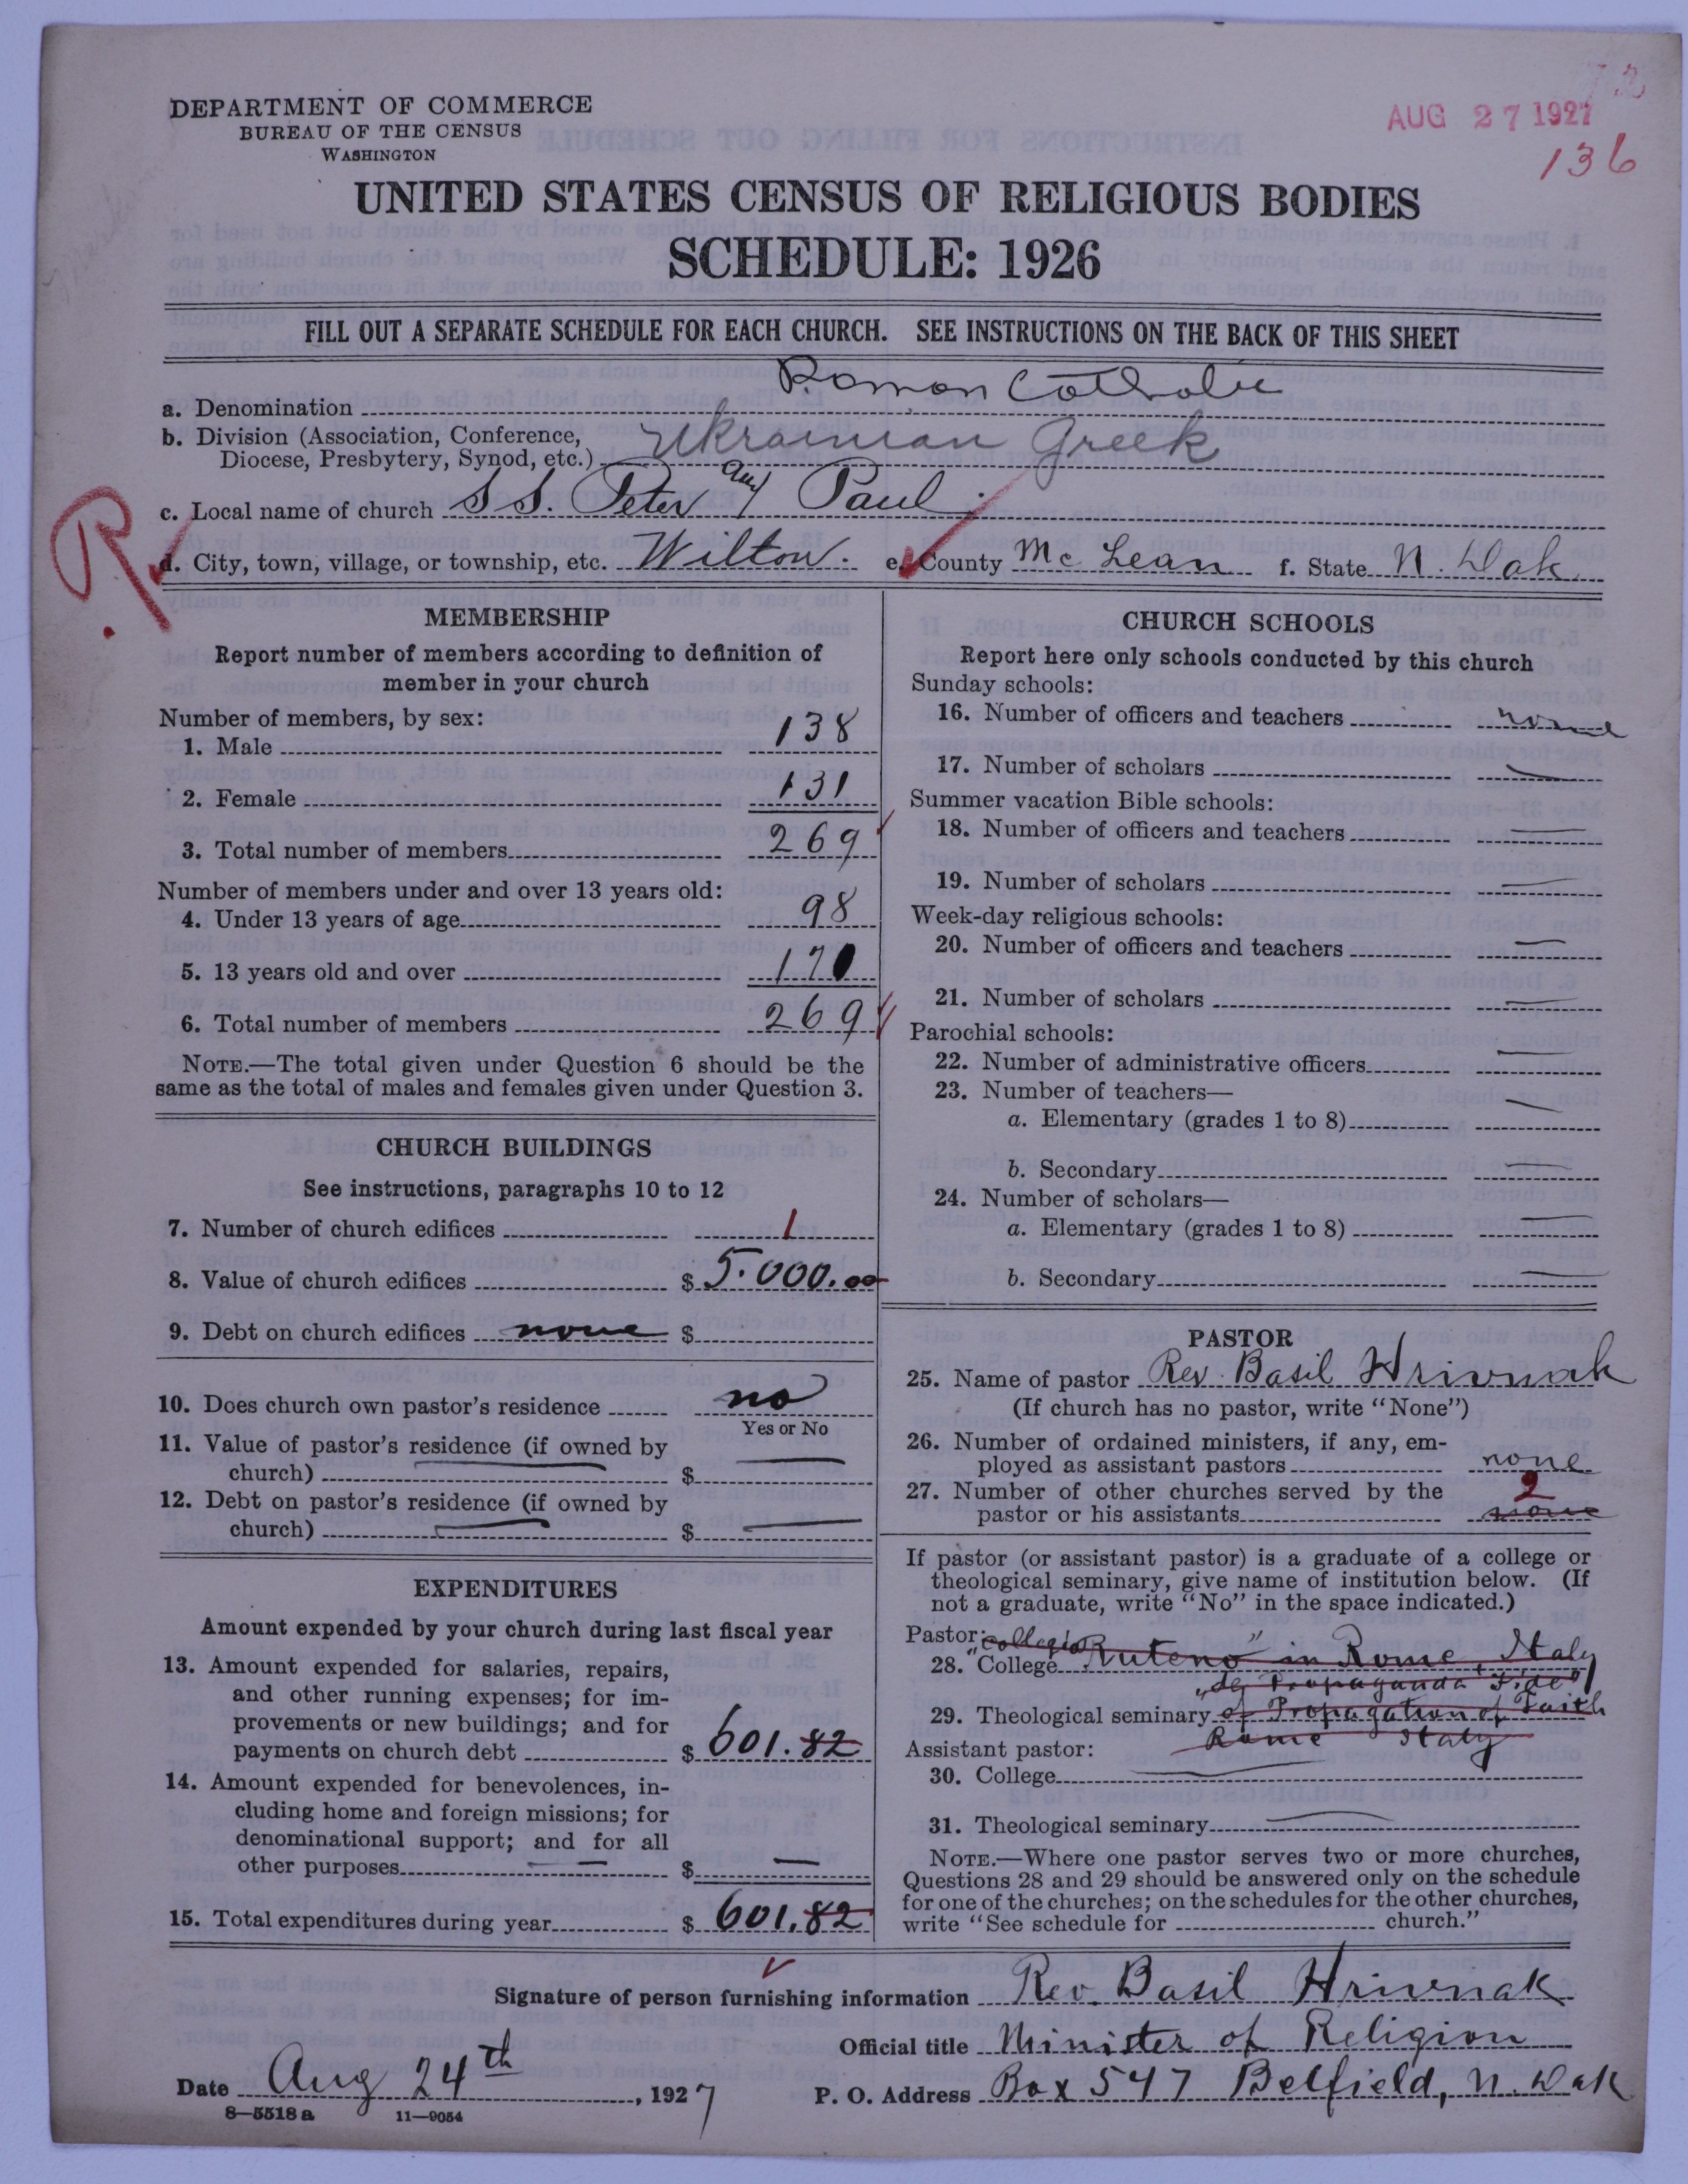 DEPARTMENT OF COMMERCE
BUREAU OF THE CENSUS
WASHINGTON
AUG 27 1927
136
UNITED STATES CENSUS OF RELIGIOUS BODIES
SCHEDULE: 1926
FILL OUT A SEPARATE SCHEDULE FOR EACH CHURCH. SEE INSTRUCTIONS ON THE BACK OF THIS SHEET
a. Denomination Roman Catholic
b. Division (Association, Conference,
Diocese, Presbytery, Synod, etc.) Ukrainian Greek
c. Local name of church S S. Peter and Paul.
R.
d. City, town, village, or township, etc. Wilton. e. County Mc Lean f. State N. Dak.
MEMBERSHIP
Report number of members according to definition of
member in your church
Number of members, by sex:
1. Male 138
2. Female 131
3. Total number of members 269
Number of members under and over 13 years old:
4. Under 13 years of age 98
5. 13 years old and over
6. Total number of members 269
NOTE.—The total given under Question 6 should be the
same as the total of males and females given under Question 3.
CHURCH BUILDINGS
See instructions, paragraphs 10 to 12
7. Number of church edifices 1
8. Value of church edifices $ 5.000.00
9. Debt on church edifices none $
10. Does church own pastor's residence no
Yes or No
11. Value of pastor's residence (if owned by
church) $ —
12. Debt on pastor's residence (if owned by
church) $ —
EXPENDITURES
Amount expended by your church during last fiscal year
13. Amount expended for salaries, repairs,
and other running expenses; for im-
provements or new buildings; and for
payments on church debt $ 601.82
14. Amount expended for benevolences, in-
cluding home and foreign missions; for
denominational support; and for all
other purposes $ —
15. Total expenditures during year $ 601.82
CHURCH SCHOOLS
Report here only schools conducted by this church
Sunday schools:
16. Number of officers and teachers none
17. Number of scholars —
Summer vacation Bible schools:
18. Number of officers and teachers —
19. Number of scholars —
Week-day religious schools:
20. Number of officers and teachers —
21. Number of scholars —
Parochial schools:
22. Number of administrative officers —
23. Number of teachers—
a. Elementary (grades 1 to 8) —
b. Secondary —
24. Number of scholars—
a. Elementary (grades 1 to 8) —
b. Secondary —
PASTOR
25. Name of pastor Rev. Basil Hrivnak
(If church has no pastor, write "None")
26. Number of ordained ministers, if any, em-
ployed as assistant pastors none
27. Number of other churches served by the
2
pastor or his assistants none
If pastor (or assistant pastor) is a graduate of a college or
theological seminary, give name of institution below. (If
not a graduate, write "No" in the space indicated.)
Pastor: "Collegio
28. College Ruteno" in Rome, Italy
"de Propaganda Fide"
29. Theological seminary of Propagation of Faith
Assistant pastor: Rome Italy
30. College —
31. Theological seminary —
NOTE.—Where one pastor serves two or more churches,
Questions 28 and 29 should be answered only on the schedule
for one of the churches; on the schedules for the other churches,
write "See schedule for church."
Signature of person furnishing information Rev. Basil Hrivnak
Official title Minister of Religion
Date Aug 24th, 1927 P. O. Address Box 547 Belfield, N. Dak
8—5518 a 11—9054